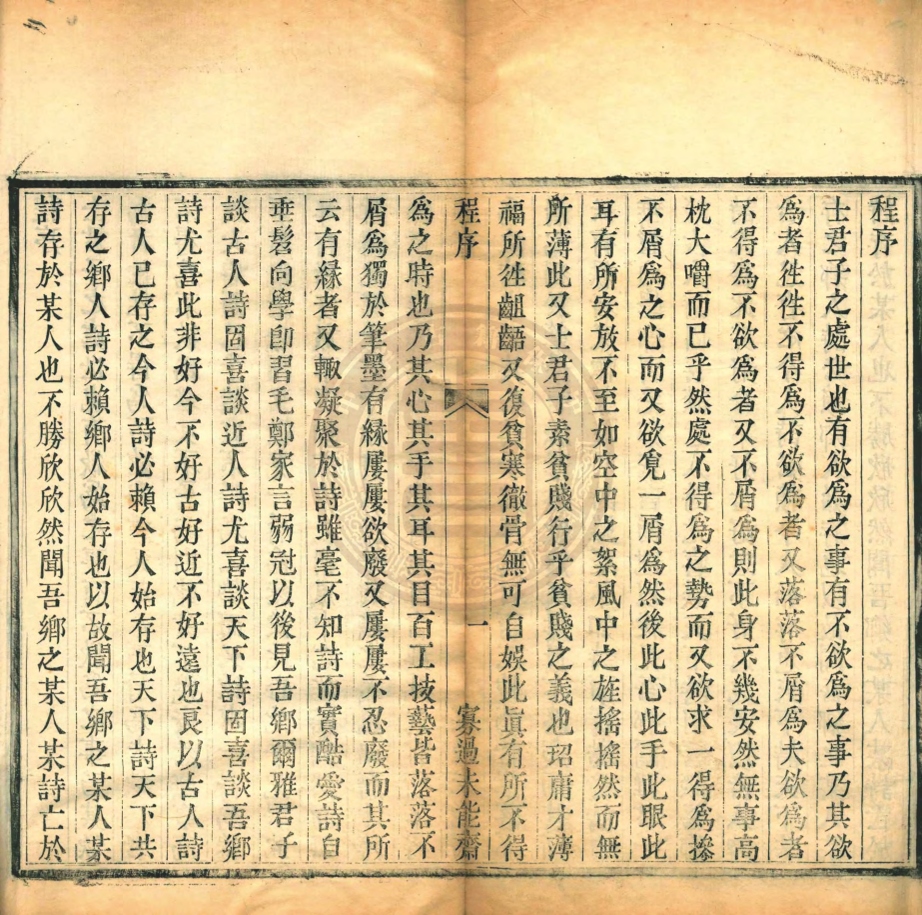 程序
士君子之處世也有欲爲之事有不欲爲之事乃其欲
爲者徃徃不得爲不欲爲者又落落不屑爲夫欲爲者
不得爲不欲爲者又不屑爲則此身不幾安然無事高
枕大嚼而已乎然處不得爲之勢而又欲求一得爲摻
不屑爲之心而又欲覓一屑爲然後此心此手此眼此
耳有所安放不至如空中之絮風中之旌搖搖然而無
所薄此又士君子素貧賤行乎貧賤之義也玿庸才薄
福所徃齟齬又復貧寒徹骨無可自娛此眞有所不得
程序 一 寡過未能齋
爲之時也乃其心其手其耳其目百工技藝皆落落不
屑爲獨於筆墨有緣屢屢欲廢又屢屢不忍廢而其所
云有緣者又輙凝聚於詩雖毫不知詩而實酷愛詩自
垂髫向學卽習毛鄭家言弱冠以後見吾鄉爾雅君子
談古人詩固喜談近人詩尤喜談天下詩固喜談吾鄉
詩尤喜此非好今不好古好近不好遠也良以古人詩
古人已存之今人詩必賴今人始存也天下詩天下共
存之鄉人詩必賴鄉人始存也以故聞吾鄉之某人某
詩存於某人也不勝欣欣然聞吾鄉之某人某詩亡於